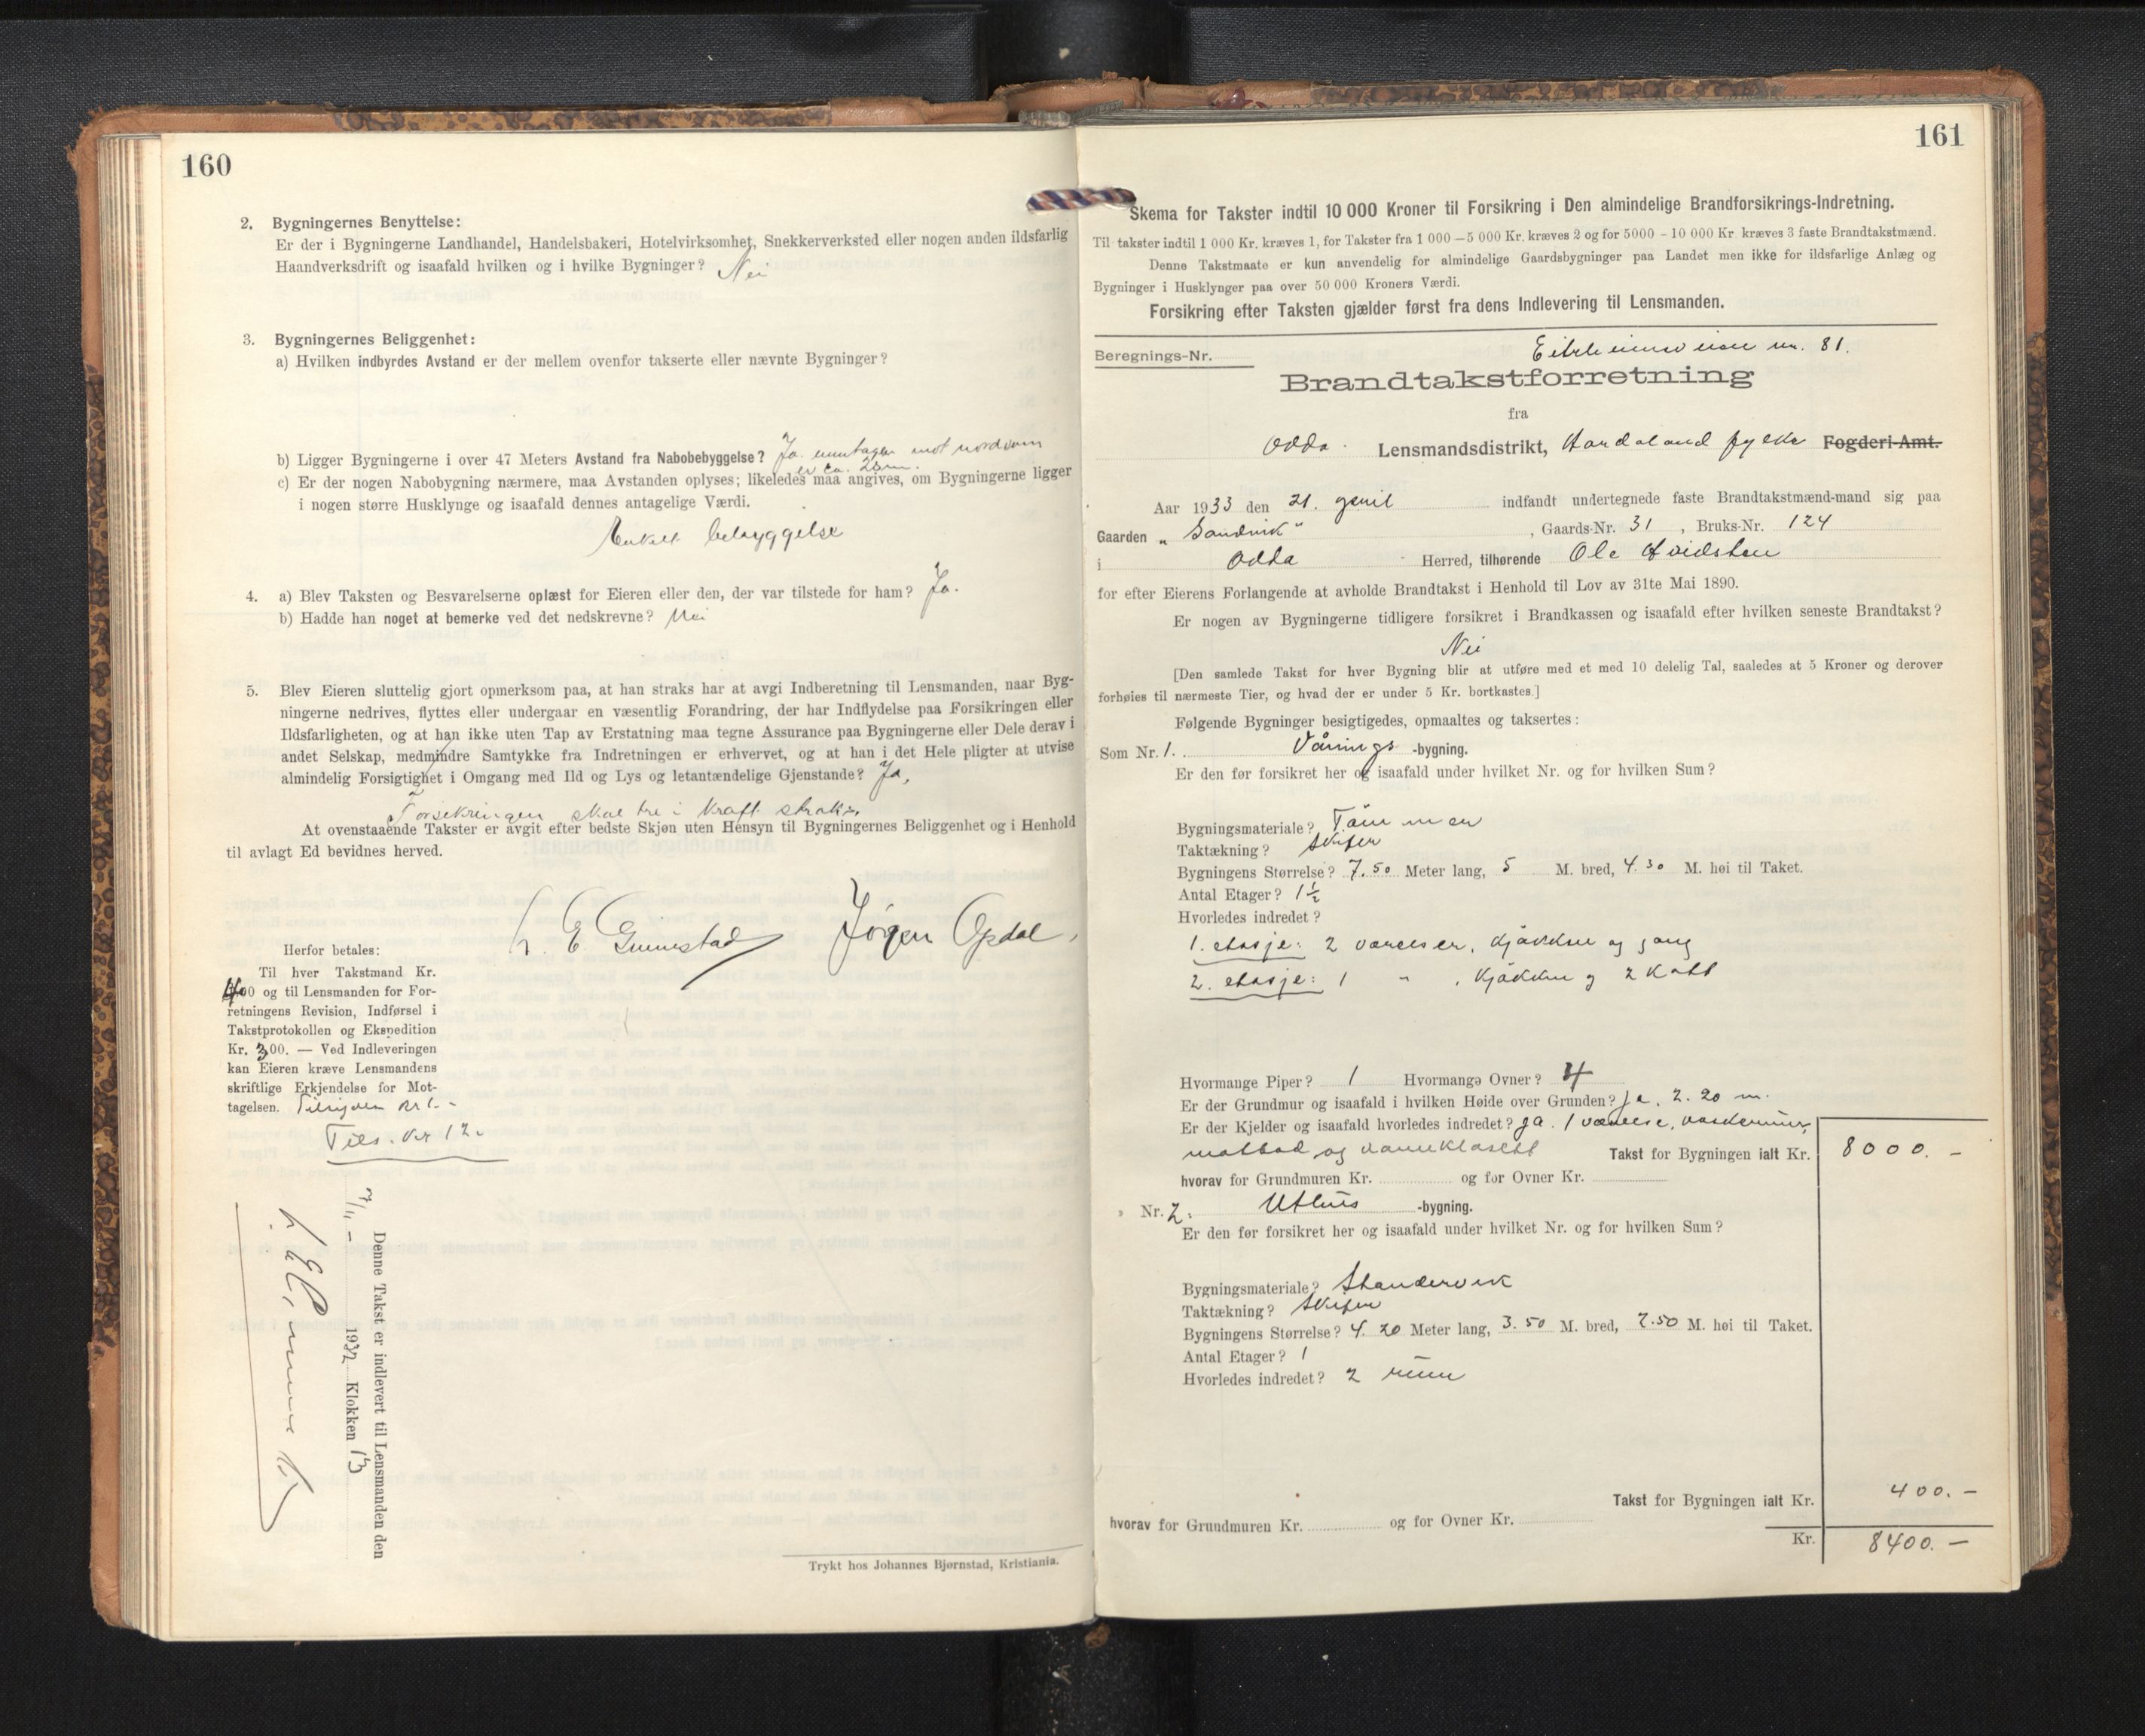 160
2. Bygningernes Benyttelse:
Er der i Bygningerne Landhandel, Handelsbakeri, Hotelvirksomhet, Snekkerverksted eller nogen anden ildsfarlig
Haandverksdrift og isaafald hvilken og i hvilke Bygninger? Nei
3. Bygningernes Beliggenhet:
a) Hvilken indbyrdes Avstand er der mellem ovenfor takserte eller nævnte Bygninger?
b) Ligger Bygningerne i over 47 Meters Avstand fra Nabobebyggelse? Ja. unntagen mot nord som
er ca. 20 m.
c) Er der nogen Nabobygning nærmere, maa Avstanden oplyses; likeledes maa angives, om Bygningerne ligger
i nogen større Husklynge og isaafald dennes antagelige Værdi.
Enkelt bebyggelse
4. a) Blev Taksten og Besvarelserne oplæst for Eieren eller den, der var tilstede for ham? Ja.
b) Hadde han noget at bemerke ved det nedskrevne? Nei
5. Blev Eieren sluttelig gjort opmerksom paa, at han straks har at avgi Indberetning til Lensmanden, naar Byg-
ningerne nedrives, flyttes eller undergaar en væsentlig Forandring, der har Indflydelse paa Forsikringen eller
Ildsfarligheten, og at han ikke uten Tap av Erstatning maa tegne Assurance paa Bygningerne eller Dele derav i
andet Selskap, medmindre Samtykke fra Indretningen er erhvervet, og at han i det Hele pligter at utvise
almindelig Forsigtighet i Omgang med Ild og Lys og letantændelige Gjenstande? Ja,
Forsikringen skal tre i kraft straks.
At ovenstaaende Takster er avgit efter bedste Skjøn uten Hensyn til Bygningernes Beliggenhet og i Henhold
til avlagt Ed bevidnes herved.
Jørgen Opdal,
Herfor betales:
Til hver Takstmand Kr.
4.00 og til Lensmanden for For-
retningens Revision, Indførsel i
Takstprotokollen og Ekspedition
Kr. 3.00. — Ved Indleveringen
kan Eieren kræve Lensmandens
skriftlige Erkjendelse for Mot-
tagelsen. kr 1.-
Tils. kr 12.
Denne Takst er indlevert til Lensmanden den
7/11 - 1932 Klokken 13
Trykt hos Johannes Bjørnstad, Kristiania.
161
Skema for Takster indtil 10 000 Kroner til Forsikring i Den almindelige Brandforsikrings-Indretning.
Til takster indtil 1 000 Kr. kræves 1, for Takster fra 1 000—5 000 Kr. kræves 2 og for 5000 - 10 000 Kr. kræves 3 faste Brandtakstmænd.
Denne Takstmaate er kun anvendelig for almindelige Gaardsbygninger paa Landet men ikke for ildsfarlige Anlæg og
Bygninger i Husklynger paa over 50 000 Kroners Værdi.
Forsikring efter Taksten gjælder først fra dens Indlevering til Lensmanden.
Eitrheimsveien nr. 81.
Beregnings-Nr.
Brandtakstforretning
fra
Odda Lensmandsdistrikt, Hordaland fylke Fogderi-Amt.
Aar 1933 den 21. april indfandt undertegnede faste Brandtakstmænd-mand sig paa
Gaarden „Sandvik" , Gaards-Nr. 31 , Bruks-Nr. 124
i Odda Herred, tilhørende Ole Hvidsten
for efter Eierens Forlangende at avholde Brandtakst i Henhold til Lov av 31te Mai 1890.
Er nogen av Bygningerne tidligere forsikret i Brandkassen og isaafald efter hvilken seneste Brandtakst?
Nei
[Den samlede Takst for hver Bygning blir at utføre med et med 10 delelig Tal, saaledes at 5 Kroner og derover
forhøies til nærmeste Tier, og hvad der er under 5 Kr. bortkastes.]
Følgende Bygninger besigtigedes, opmaaltes og taksertes:
Som Nr. 1. Vånings -bygning.
Er den før forsikret her og isaafald under hvilket Nr. og for hvilken Sum?
Bygningsmateriale? Tømmer
Taktækning? Skifer
Bygningens Størrelse? 7.50 Meter lang, 5 M. bred, 4.30 M. høi til Taket.
Antal Etager? 1½
Hvorledes indredet?
1. etasje: 2 værelser, kjøkken og gang
2. etasje: 1 " , kjøkken og 2 kott
Hvormange Piper? 1 Hvormange Ovner? 4
Er der Grundmur og isaafald i hvilken Høide over Grunden? Ja. 2.20 m.
Er der Kjelder og isaafald hvorledes indredet? Ja. 1 værelse, vaskerum,
matbod og vannklosett Takst for Bygningen ialt Kr. 8000.-
hvorav for Grundmuren Kr. og for Ovner Kr.
» Nr. 2. Uthus -bygning.
Er den før forsikret her og isaafald under hvilket Nr. og for hvilken Sum?
Bygningsmateriale? Standerverk
Taktækning? Skifer
Bygningens Størrelse? 4.20 Meter lang, 3.50 M. bred, 2.50 M. høi til Taket.
Antal Etager? 1
Hvorledes indredet? 2 rum
Takst for Bygningen ialt Kr. 400.-
hvorav for Grundmuren Kr. og for Ovner Kr.
Kr. 8400.-